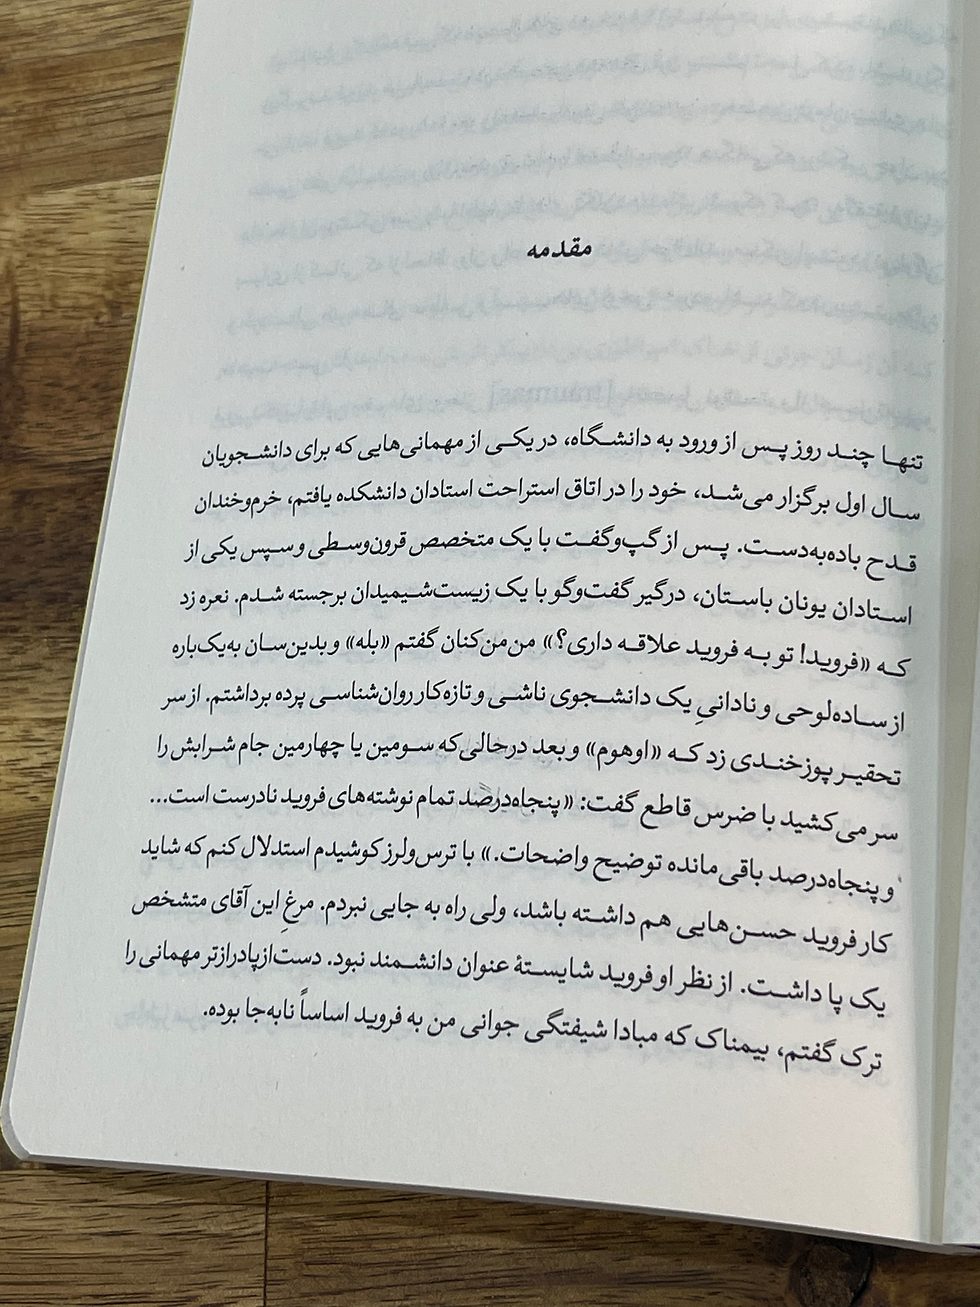 مقدمه
تنها چند روز پس از ورود به دانشگاه، در یکی از مهمانی‌هایی که برای دانشجویان
سال اول برگزار می‌شد، خود را در اتاق استراحت استادان دانشکده یافتم، خرم‌وخندان
قدح باده‌به‌دست. پس از گپ‌وگفت با یک متخصص قرون‌وسطی و سپس یکی از
استادان یونان باستان، درگیر گفت‌وگو با یک زیست‌شیمیدان برجسته شدم. نعره زد
که «فروید! تو به فروید علاقه داری؟» من‌من‌کنان گفتم «بله» و بدین‌سان به‌یک‌باره
از ساده‌لوحی و نادانیِ یک دانشجوی ناشی و تازه‌کار روان‌شناسی پرده برداشتم. از سر
تحقیر پوزخندی زد که «اوهوم» و بعد درحالی‌که سومین یا چهارمین جام شرابش را
سر می‌کشید با ضرس قاطع گفت: «پنجاه‌درصد تمام نوشته‌های فروید نادرست است...
و پنجاه‌درصد باقی‌مانده توضیح واضحات.» با ترس‌ولرز کوشیدم استدلال کنم که شاید
کار فروید حسن‌هایی هم داشته باشد، ولی راه به جایی نبردم. مرغِ این آقای متشخص
یک پا داشت. از نظر او فروید شایستهٔ عنوان دانشمند نبود. دست‌ازپادرازتر مهمانی را
ترک گفتم، بیمناک که مبادا شیفتگی جوانی من به فروید اساساً نابه‌جا بوده.